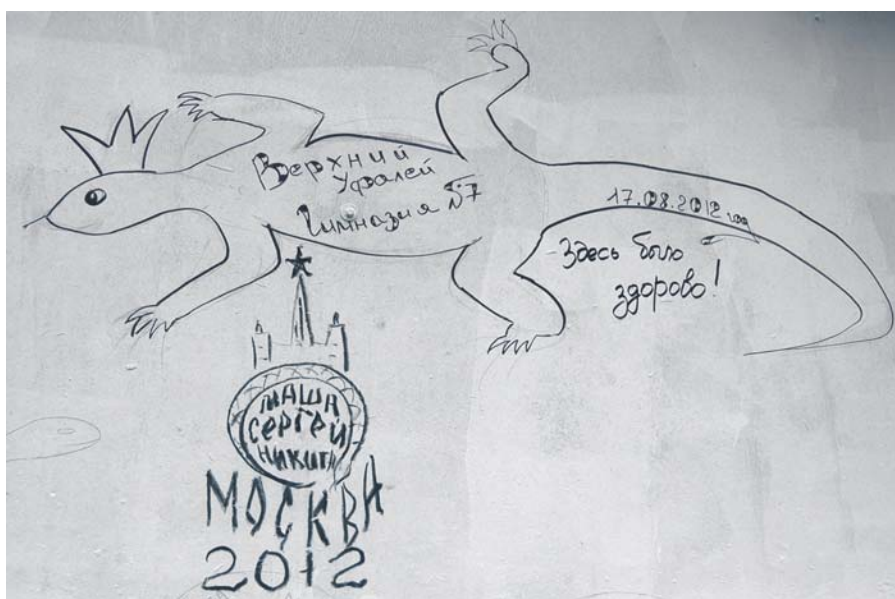 Верхний
Уфалей
Гимназия №7
17.08.2012 год
Здесь было
здорово!
МАША
СЕРГЕЙ
НИКИТА
МОСКВА
2012